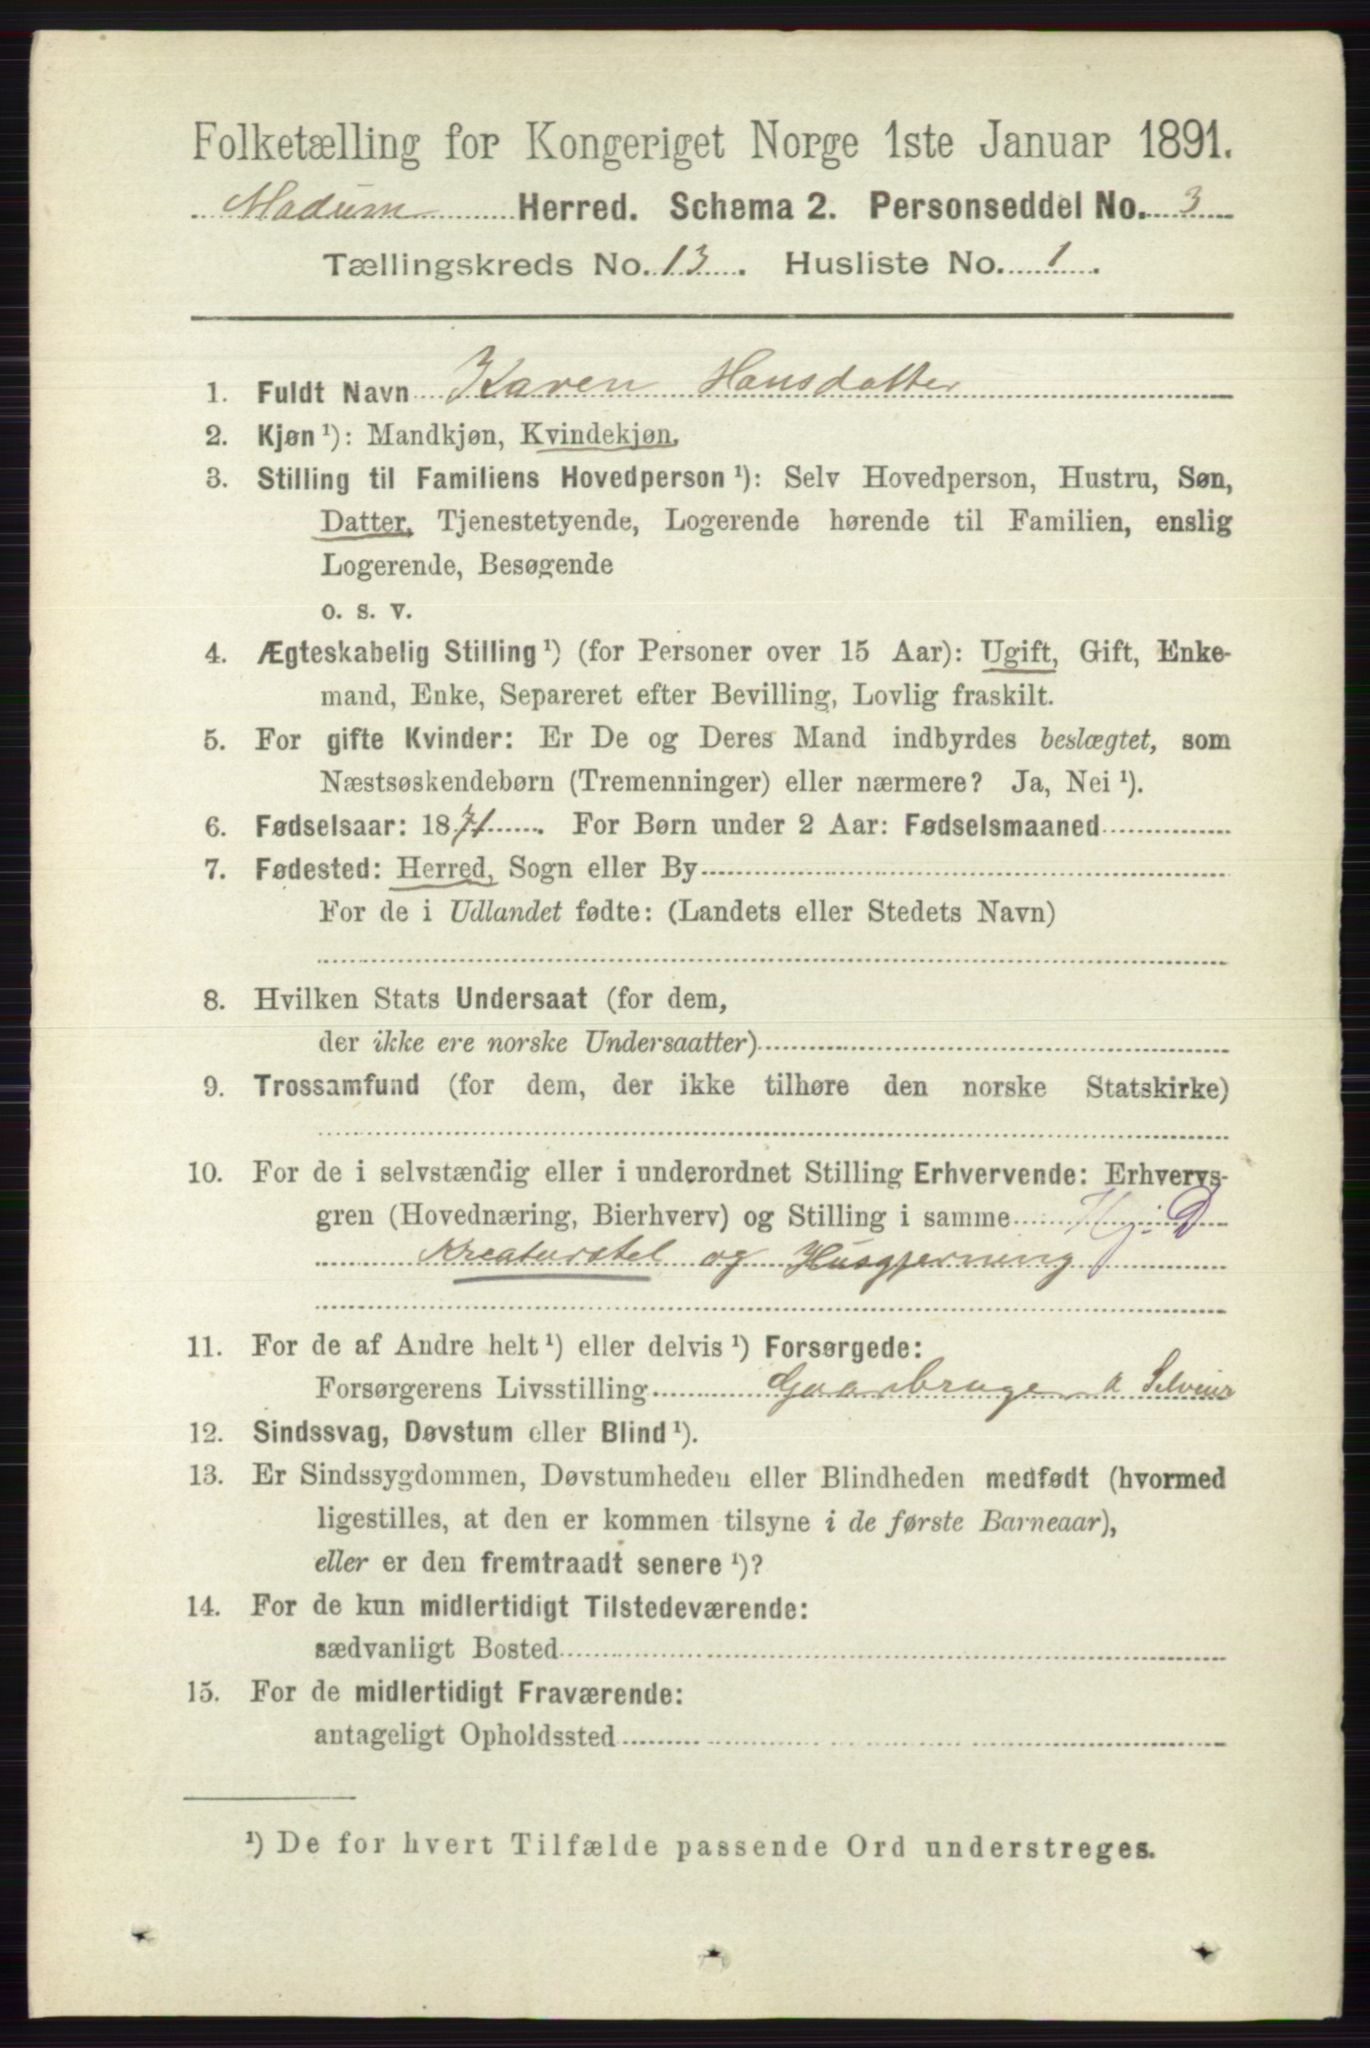 Folketælling for Kongeriget Norge 1ste Januar 1891.
Modum Herred. Schema 2. Personseddel No. 3
Tællingskreds No. 13. Husliste No. 1.
1. Fuldt Navn Karen Hansdatter
2. Kjøn ¹): Mandkjøn, Kvindekjøn.
3. Stilling til Familiens Hovedperson ¹): Selv Hovedperson, Hustru, Søn,
Datter, Tjenestetyende, Logerende hørende til Familien, enslig
Logerende, Besøgende
o. s. v.
4. Ægteskabelig Stilling ¹) (for Personer over 15 Aar): Ugift, Gift, Enke-
mand, Enke, Separeret efter Bevilling, Lovlig fraskilt.
5. For gifte Kvinder: Er De og Deres Mand indbyrdes beslægtet, som
Næstsøskendebørn (Tremenninger) eller nærmere? Ja, Nei ¹).
6. Fødselsaar: 1871. For Børn under 2 Aar: Fødselsmaaned
7. Fødested: Herred, Sogn eller By
For de i Udlandet fødte: (Landets eller Stedets Navn)
8. Hvilken Stats Undersaat (for dem,
der ikke ere norske Undersaatter)
9. Trossamfund (for dem, der ikke tilhøre den norske Statskirke)
10. For de i selvstændig eller i underordnet Stilling Erhvervende: Erhvervs-
gren (Hovednæring, Bierhverv) og Stilling i samme Hj. D
Kreaturstel og Husgjerning
11. For de af Andre helt ¹) eller delvis ¹) Forsørgede:
Forsørgerens Livsstilling Gaarbruger a
12. Sindssvag, Døvstum eller Blind ¹).
13. Er Sindssygdommen, Døvstumheden eller Blindheden medfødt (hvormed
ligestilles, at den er kommen tilsyne i de første Barneaar),
eller er den fremtraadt senere ¹)?
14. For de kun midlertidigt Tilstedeværende:
sædvanligt Bosted
15. For de midlertidigt Fraværende:
antageligt Opholdssted
¹) De for hvert Tilfælde passende Ord understreges.